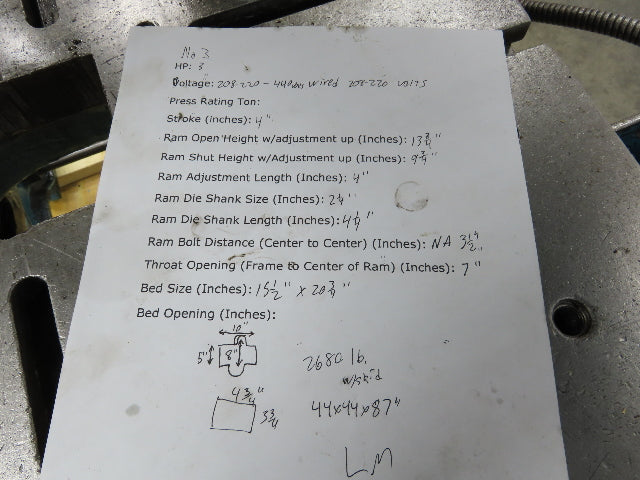 No 3
HP: 3
Voltage: 208-220-440 wired 208-220 volts
Press Rating Ton:
Stroke (inches): 4"
Ram Open Height w/adjustment up (Inches): 13 3/4"
Ram Shut Height w/Adjustment up (Inches): 9 3/4"
Ram Adjustment Length (Inches): 4"
Ram Die Shank Size (Inches):
Ram Die Shank Length (Inches): 4 1/4"
Ram Bolt Distance (Center to Center) (Inches): NA
Throat Opening (Frame to Center of Ram) (Inches): 7"
Bed Size (Inches): 15 1/2" x 20 3/4"
Bed Opening (Inches):
10"
5" 8"
2680 lb.
w/skid
4 3/4"
3 3/4
44x44x87"
LM